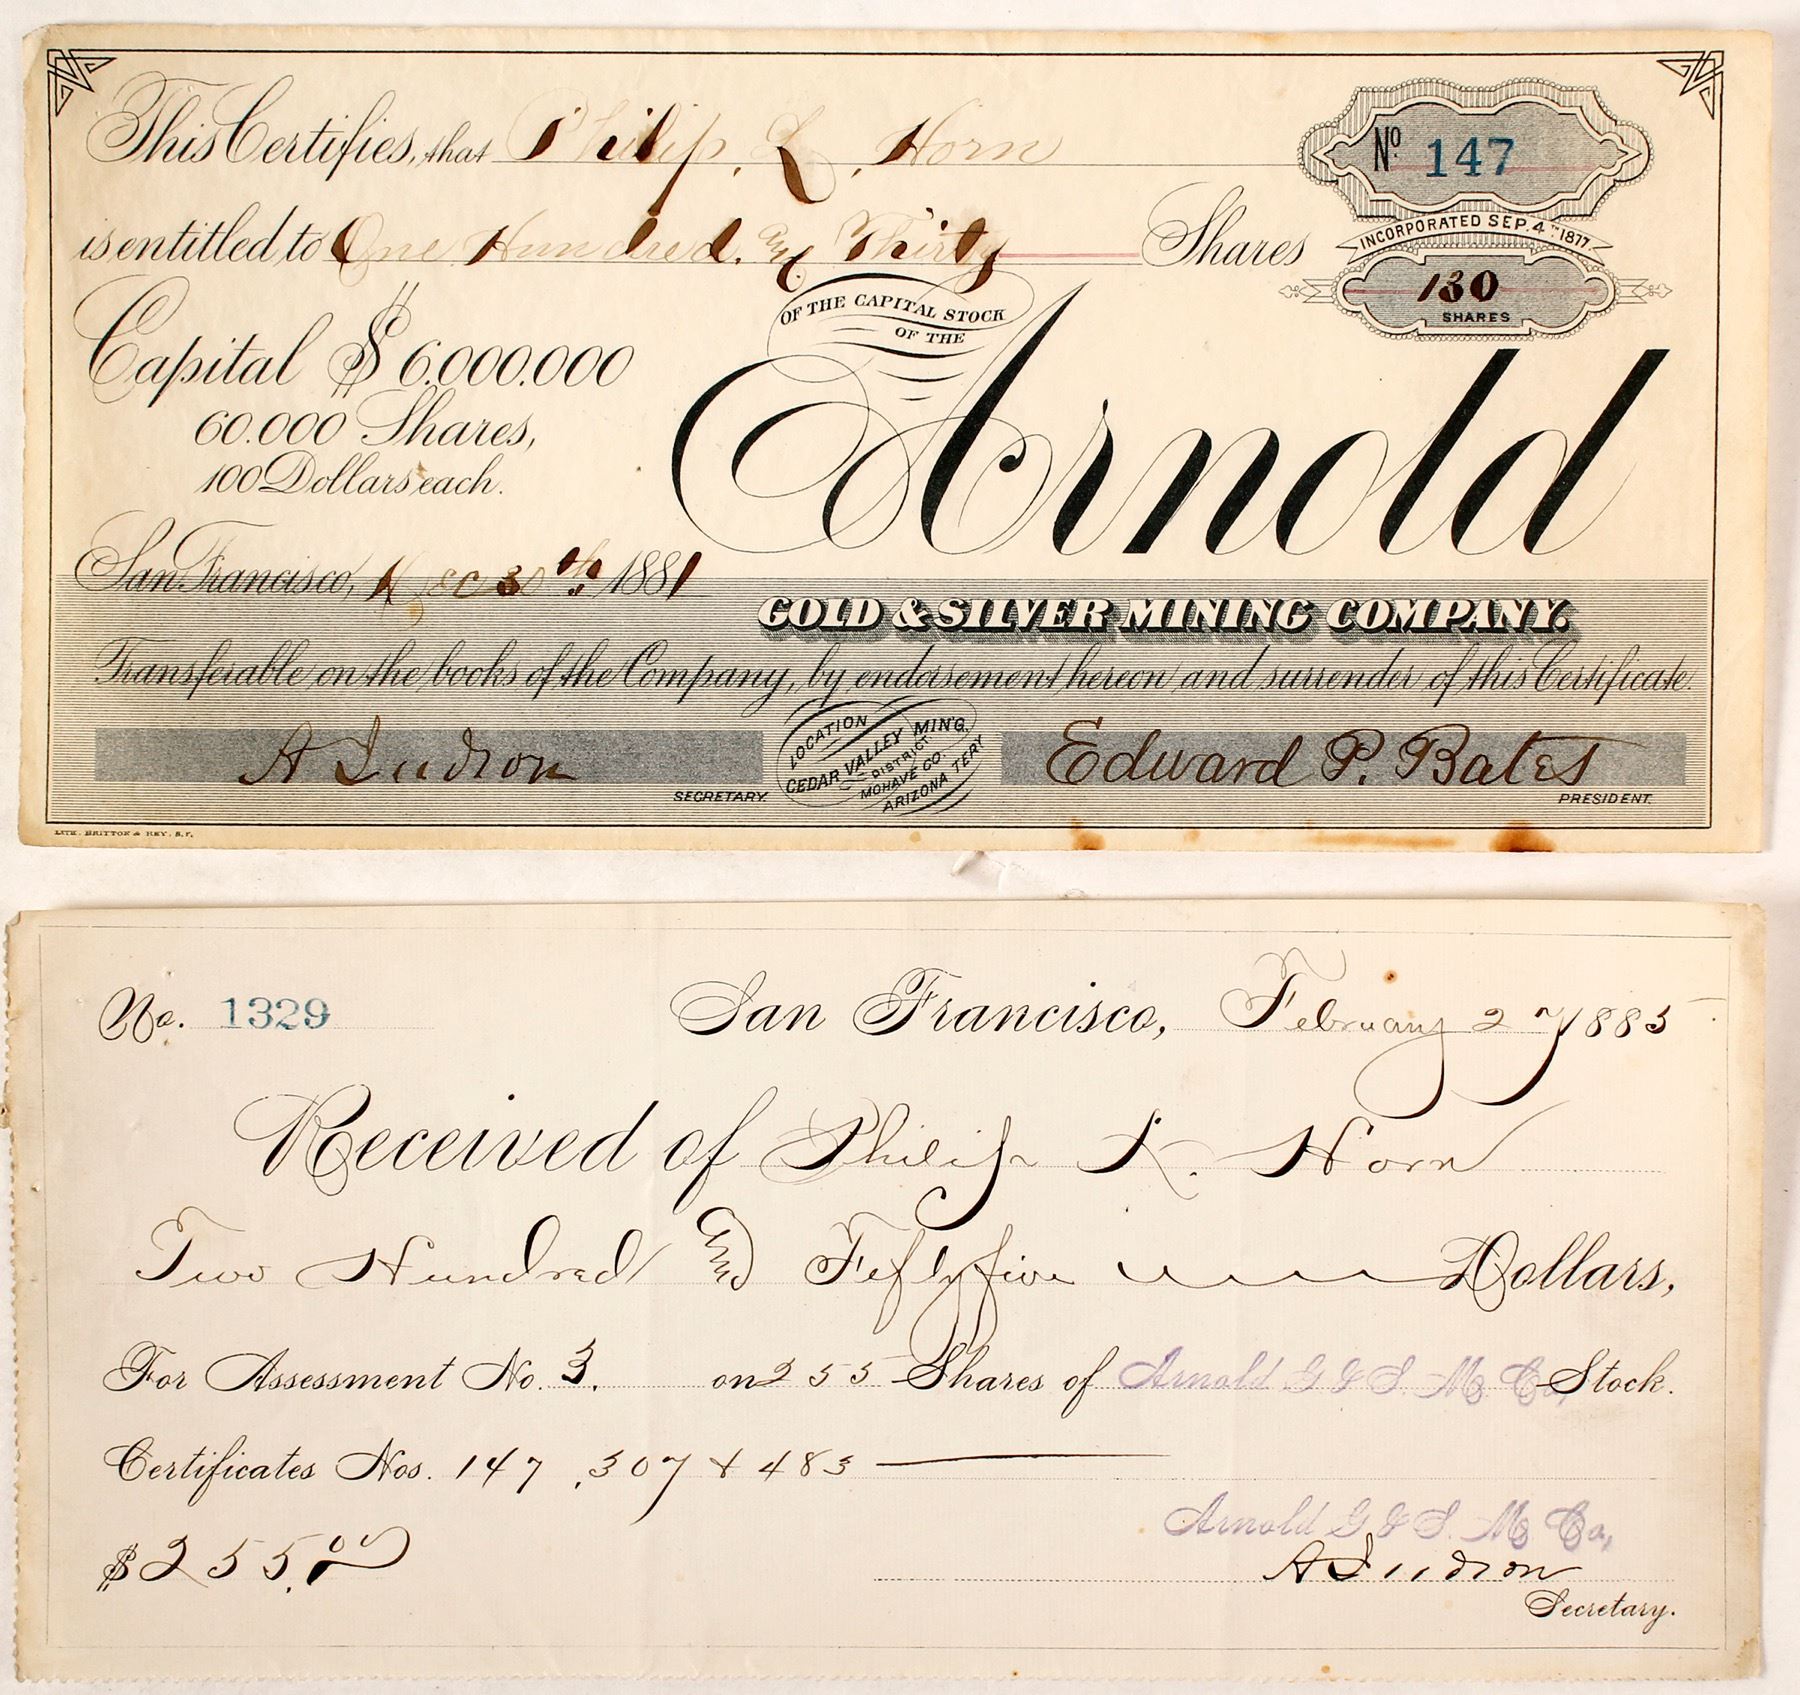 This Certifies, that Philip. L. Horn
No. 147
is entitled to One Hundred. and Thirty Shares
INCORPORATED SEP. 4TH 1877
130
SHARES
OF THE CAPITAL STOCK
OF THE
Capital $6.000.000
60.000 Shares,
100 Dollars each.
Arnold
San Francisco, Dec 30th 1881
GOLD & SILVER MINING COMPANY.
Transferable on the books of the Company, by endorsement hereon and surrender of this Certificate.
A Judson
SECRETARY.
LOCATION
CEDAR VALLEY MIN'G.
DISTRICT
MOHAVE CO
ARIZONA TERY
Edward P. Bates
PRESIDENT.
LITH. BRITTON & REY. S.F.
No. 1329
San Francisco, February 27 1885
Received of Philip K. Horn
Two Hundred and Fiftyfive Dollars,
For Assessment No. 3. on 255 Shares of Arnold G & S. M. Co, Stock.
Certificates Nos. 147, 307 & 483
Arnold G & S. M. Co,
$255.00
A Judson
Secretary.